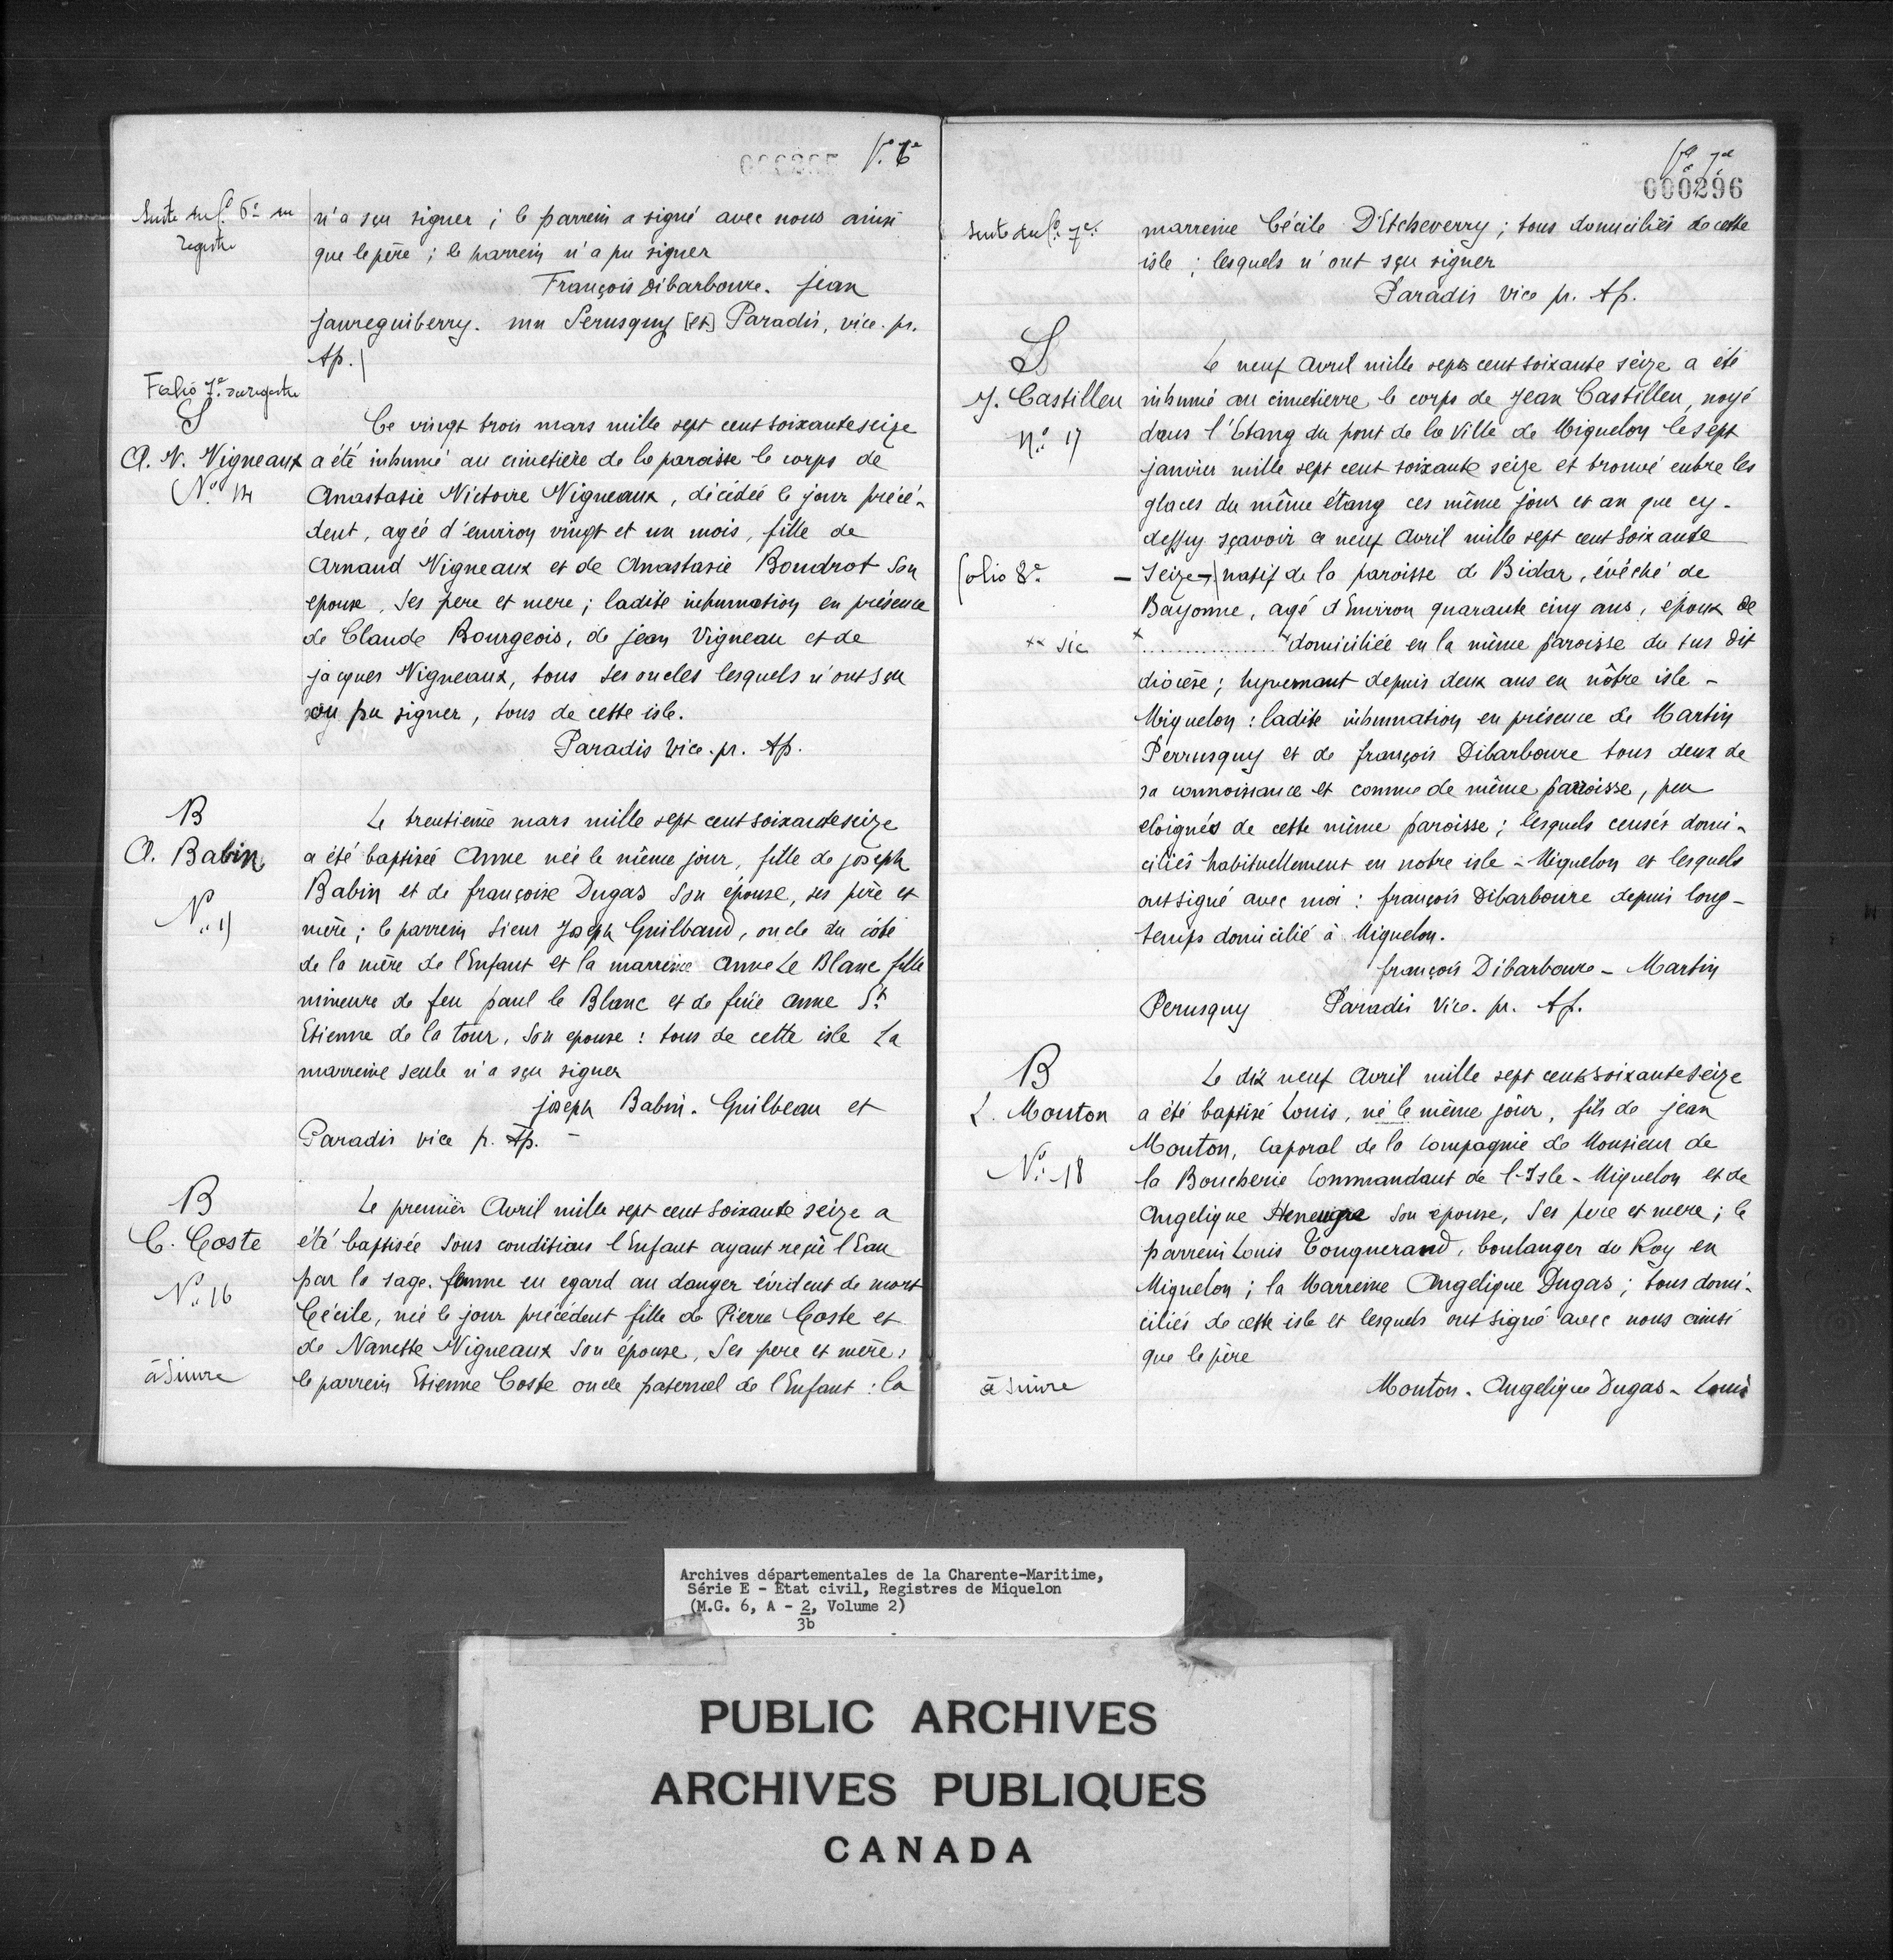 Vo. 6e
Suite du fo. 6e du
registre
n'a sçu signer ; le parrein a signé avec nous ainsi
que le père ; le parrein n'a pu signer
François Dibarboure. jean
jaureguiberry. mn Perusquy [et] Paradis, vice. pr.
Ap. |
Folio 7e. du registre
S
A. V. Vigneaux
No. 14
Ce vingt trois mars mille sept cent soixante seize
a été inhumé au cimetière de la paroisse le corps de
Anastasie Victoire Vigneaux, décédée le jour précé-
dent, agée d'environ vingt et un mois, fille de
Arnaud Vigneaux et de Anastasie Boudrot son
epouse, ses pere et mere ; ladite inhumation en présence
de Claude Bourgeois, de jean Vigneau et de
jacques Vigneaux, tous ses oncles lesquels n'ont sçu
ou pu signer, tous de cette isle.
Paradis Vice. pr. Ap.
B
A. Babin
Le trentième mars mille sept cent soixante seize
a été baptisée Anne née le même jour, fille de joseph
Babin et de françoise Dugas son épouse, ses père et
mère ; le parrein Sieur Joseph Guilbaud, oncle du côté
de la mère de l'Enfant et la marreine Anne Le Blanc fille
mineure de feu paul le Blanc et de feüe Anne St.
Etienne de la tour, son epouse : tous de cette isle La
marreine seule n'a sçu signer
joseph Babin. Guilbeau et
Paradis vice p. Ap. -
B
C. Coste
No. 16
Le premier Avril mille sept cent soixante seize a
été baptisée sous condition l'Enfant ayant reçüe l'Eau
par la sage. femme eu egard au danger évident de mort
Cécile, née le jour précédent fille de Pierre Coste et
de Nanette Vigneaux son épouse, ses pere et mère,
le parrein Etienne Coste oncle paternel de l'Enfant : la
à Suivre
fo. 7e
000296
Suite du fo. 7e.
marreine Cécile D'Etcheverry ; tous domiciliés de cette
isle ; lesquels n'ont sçu signer
Paradis Vice pr. Ap.
S
J. Castilleu
No. 17
Le neuf Avril mille sept cent soixante seize a été
inhumé au cimetierre le corps de Jean Castilleu, noyé
dans l'Etang du pont de la Ville de Miquelon le sept
janvier mille sept cent soixante seize et trouvé entre les
glaces du même étang ces même jour et an que cy-
dessus sçavoir ce neuf Avril mille sept cent soixante
folio 8e.
- Seize -| natif de la paroisse de Bidar, évêché de
Bayonne, agé d'Environ quarante cinq ans, epoux de
×× sic
× ................ × domiciliée en la même paroisse du sus dit
diocèse ; hyvernant depuis deux ans en nôtre isle -
Miquelon : ladite inhumation en présence de Martin
Perrusquy et de françois Dibarboure tous deux de
sa connoissance et comme de même paroisse, peu
eloignés de cette même paroisse ; lesquels censés domi-
ciliés habituellement en notre isle - Miquelon et lesquels
ont signé avec moi : françois Dibarboure depuis long-
temps domicilié à Miquelon.
françois Dibarboure - Martin
Perusquy Paradis Vice. pr. Ap.
B
L. Mouton
No. 18
Le dix neuf Avril mille sept cent soixante seize
a été baptisé Louis, né le même jour, fils de jean
Mouton, Caporal de la Compagnie de Monsieur de
la Boucherie Commandant de l'Isle - Miquelon et de
Angelique son épouse, ses pere et mere ; le
parrein Louis Touquerand, boulanger du Roy en
Miquelon ; la Marreine Angelique Dugas ; tous domi-
ciliés de cette isle et lesquels ont signé avec nous ainsi
que le père
Mouton - Angelique Dugas - Louis
à Suivre
Archives départementales de la Charente-Maritime,
Série E - Etat civil, Registres de Miquelon
(M.G. 6, A - 2, Volume 2)
3b
PUBLIC ARCHIVES
ARCHIVES PUBLIQUES
CANADA